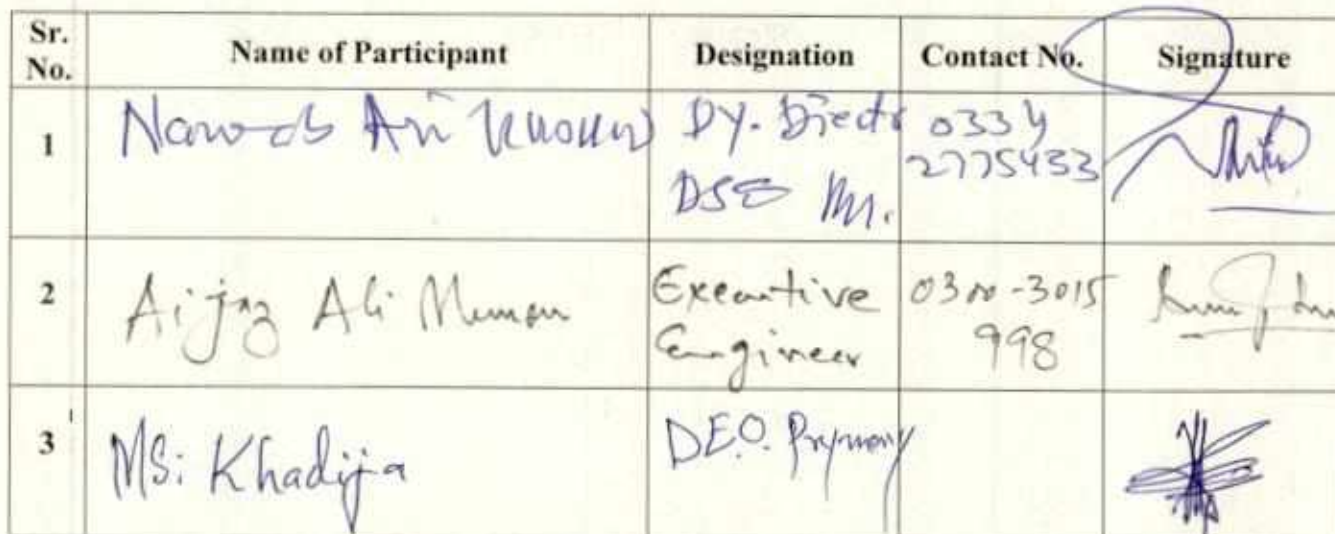 Sr. No. Name of Participant Designation Contact No. Signature
1 Nawab Ali DY. Directr 0334
DSE 2775433
2 Aijaz Ali Memon Executive 0300-3015
Engineer 998
3 MS: Khadija D.E.O. Prymary